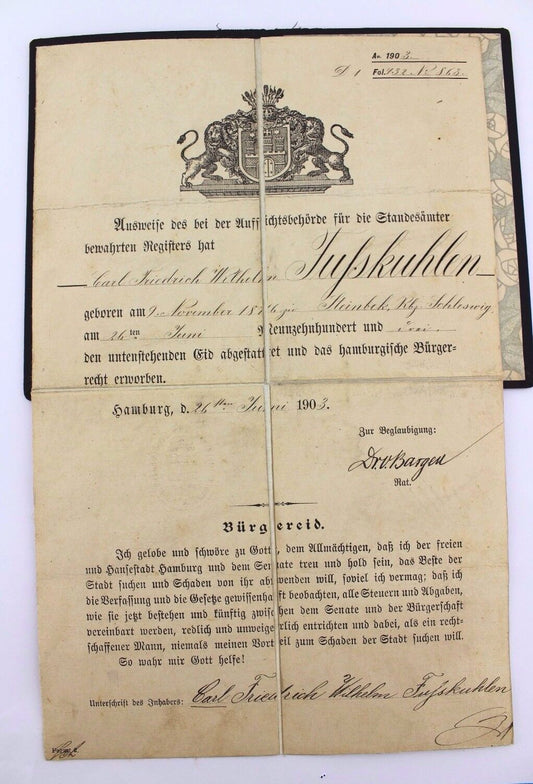 An. 1903.
D 1 Fol. 432 No 863.
Ausweise des bei der Aufsichtsbehörde für die Standesämter
bewahrten Registers hat
Carl Friedrich Wilhelm Fußkuhlen
geboren am 9. November 1876 zu Steinbek, Kbz. Schleswig,
am 26ten Juni Neunzehnhundert und drei
den untenstehenden Eid abgestattet und das hamburgische Bürger-
recht erworben.
Hamburg, d. 26ten Juni 1903.
Zur Beglaubigung:
Dr. v. Bargen
Rat.
Bürgereid.
Ich gelobe und schwöre zu Gott, dem Allmächtigen, daß ich der freien
und Hansestadt Hamburg und dem Senate treu und hold sein, das Beste der
Stadt suchen und Schaden von ihr abwenden will, soviel ich vermag; daß ich
die Verfassung und die Gesetze gewissenhaft beobachten, alle Steuern und Abgaben,
wie sie jetzt bestehen und künftig zwischen dem Senate und der Bürgerschaft
vereinbart werden, redlich und unweigerlich entrichten und dabei, als ein recht-
schaffener Mann, niemals meinen Vorteil zum Schaden der Stadt suchen will.
So wahr mir Gott helfe!
Unterschrift des Inhabers: Carl Friedrich Wilhelm Fußkuhlen